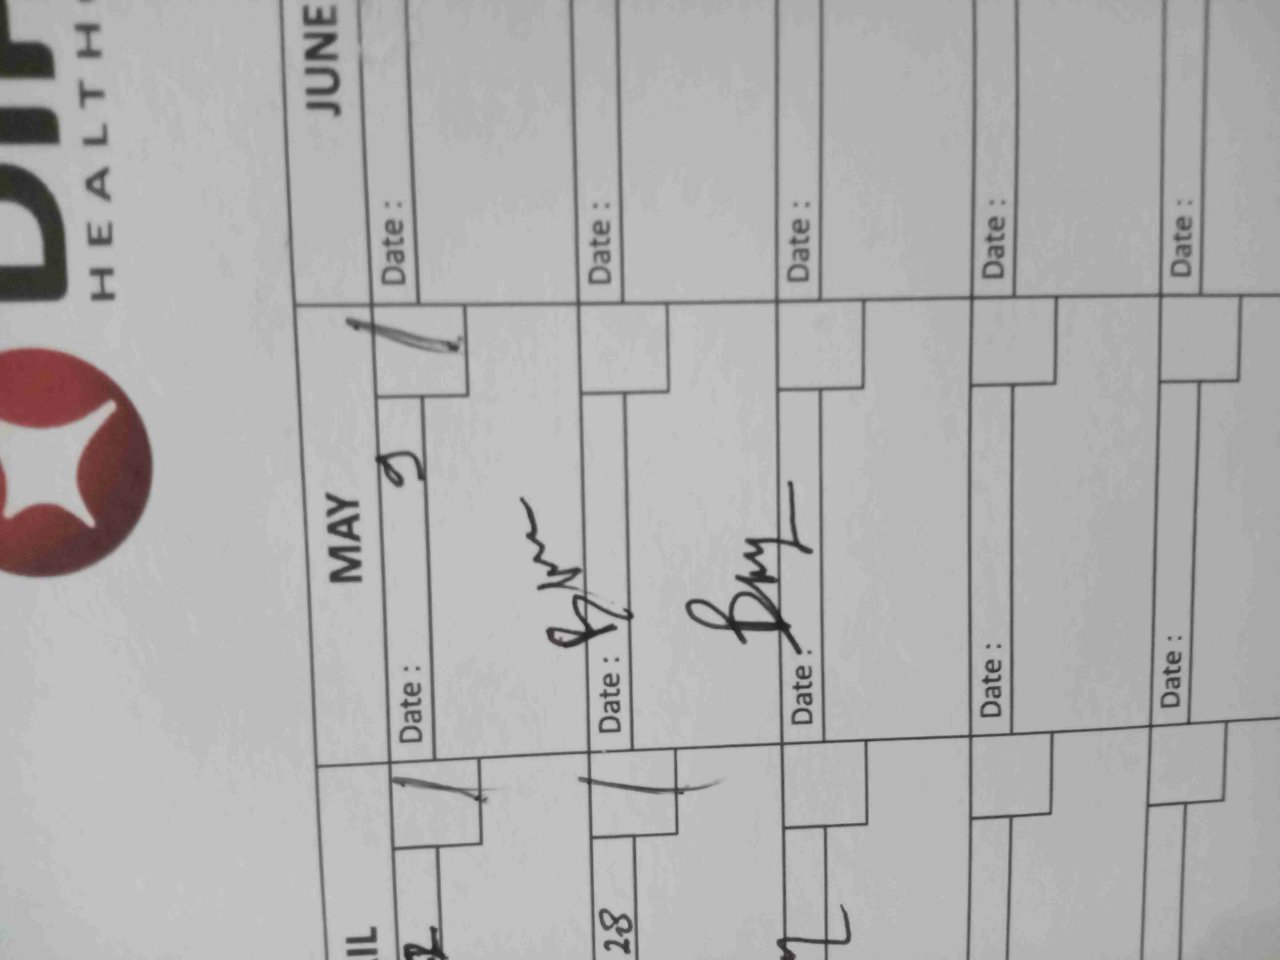 HEALTH
IL MAY JUNE
Date : 9 Date :
28 Date : Date :
Date : Date :
Date : Date :
Date : Date :